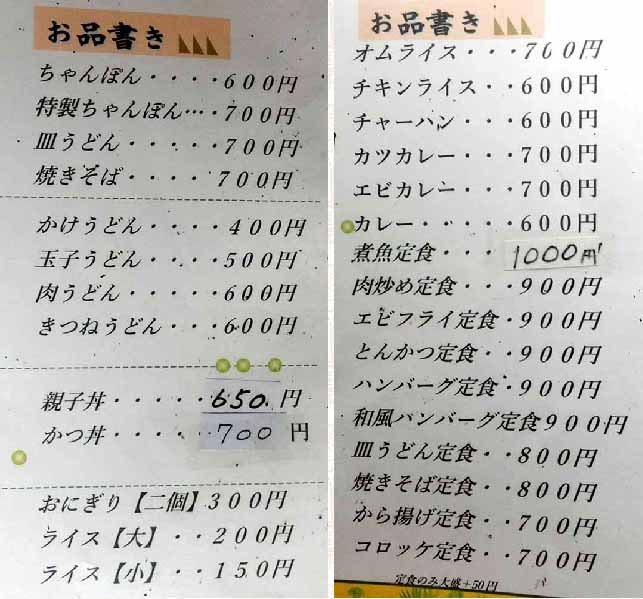 お品書き
ちゃんぽん・・・・600円
特製ちゃんぽん…・700円
皿うどん・・・・700円
焼きそば・・・・700円
かけうどん・・・400円
玉子うどん・・・500円
肉うどん・・・・600円
きつねうどん・・・600円
親子丼・・・・・650円
かつ丼・・・・・700円
おにぎり【二個】300円
ライス【大】・・200円
ライス【小】・・150円
お品書き
オムライス・・・700円
チキンライス・・600円
チャーハン・・・600円
カツカレー・・・700円
エビカレー・・・700円
カレー・・・・・600円
煮魚定食・・・1000円
肉炒め定食・・・900円
エビフライ定食・900円
とんかつ定食・・900円
ハンバーグ定食・900円
和風ハンバーグ定食900円
皿うどん定食・・800円
焼きそば定食・・800円
から揚げ定食・・700円
コロッケ定食・・700円
定食のみ大盛+50円